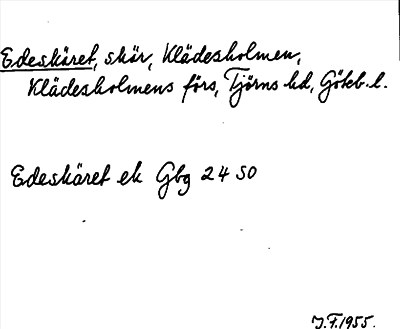 Edeskäret, skär, Klädesholmen,
Klädesholmens förs, Tjörns hd, Göteb. l.
Edeskäret ek Gbg 24 SO
J.F. 1955.